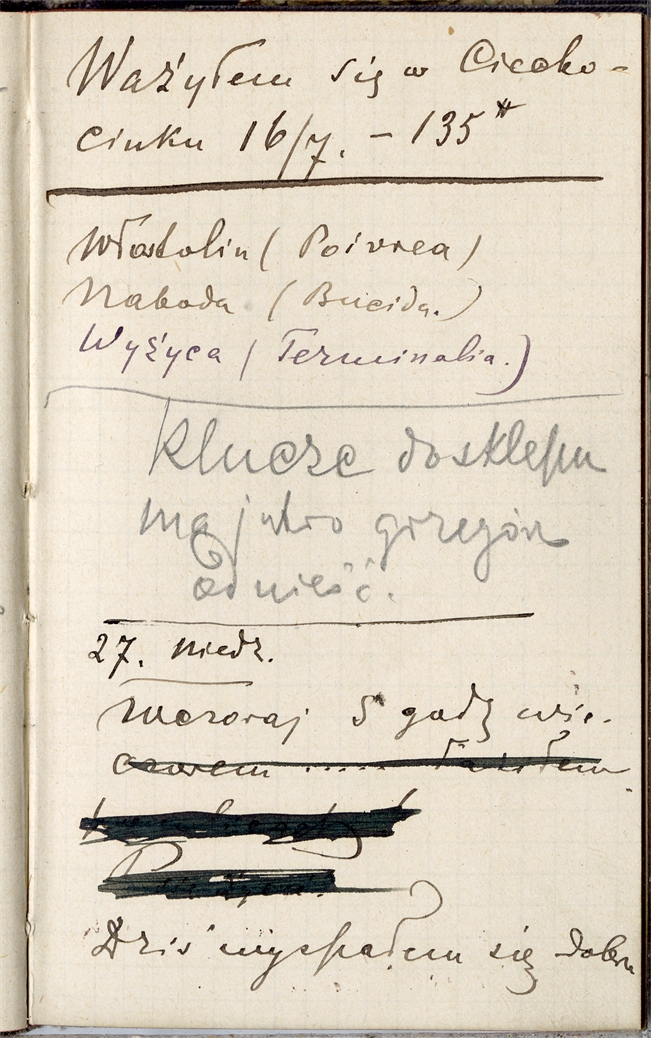 Ważyłem się w Ciecho-
cinku 16/7. – 135 #
Włostolin ( Poivrea )
Naboda ( Bucida. )
Wyżyca ( Terminalia. )
Klucze do sklepu
ma jutro grzegórz
odnieść.
27. Niedz.
Wczoraj 5 godz wie-
czorem .....
Dziś wyspałem się dobrze